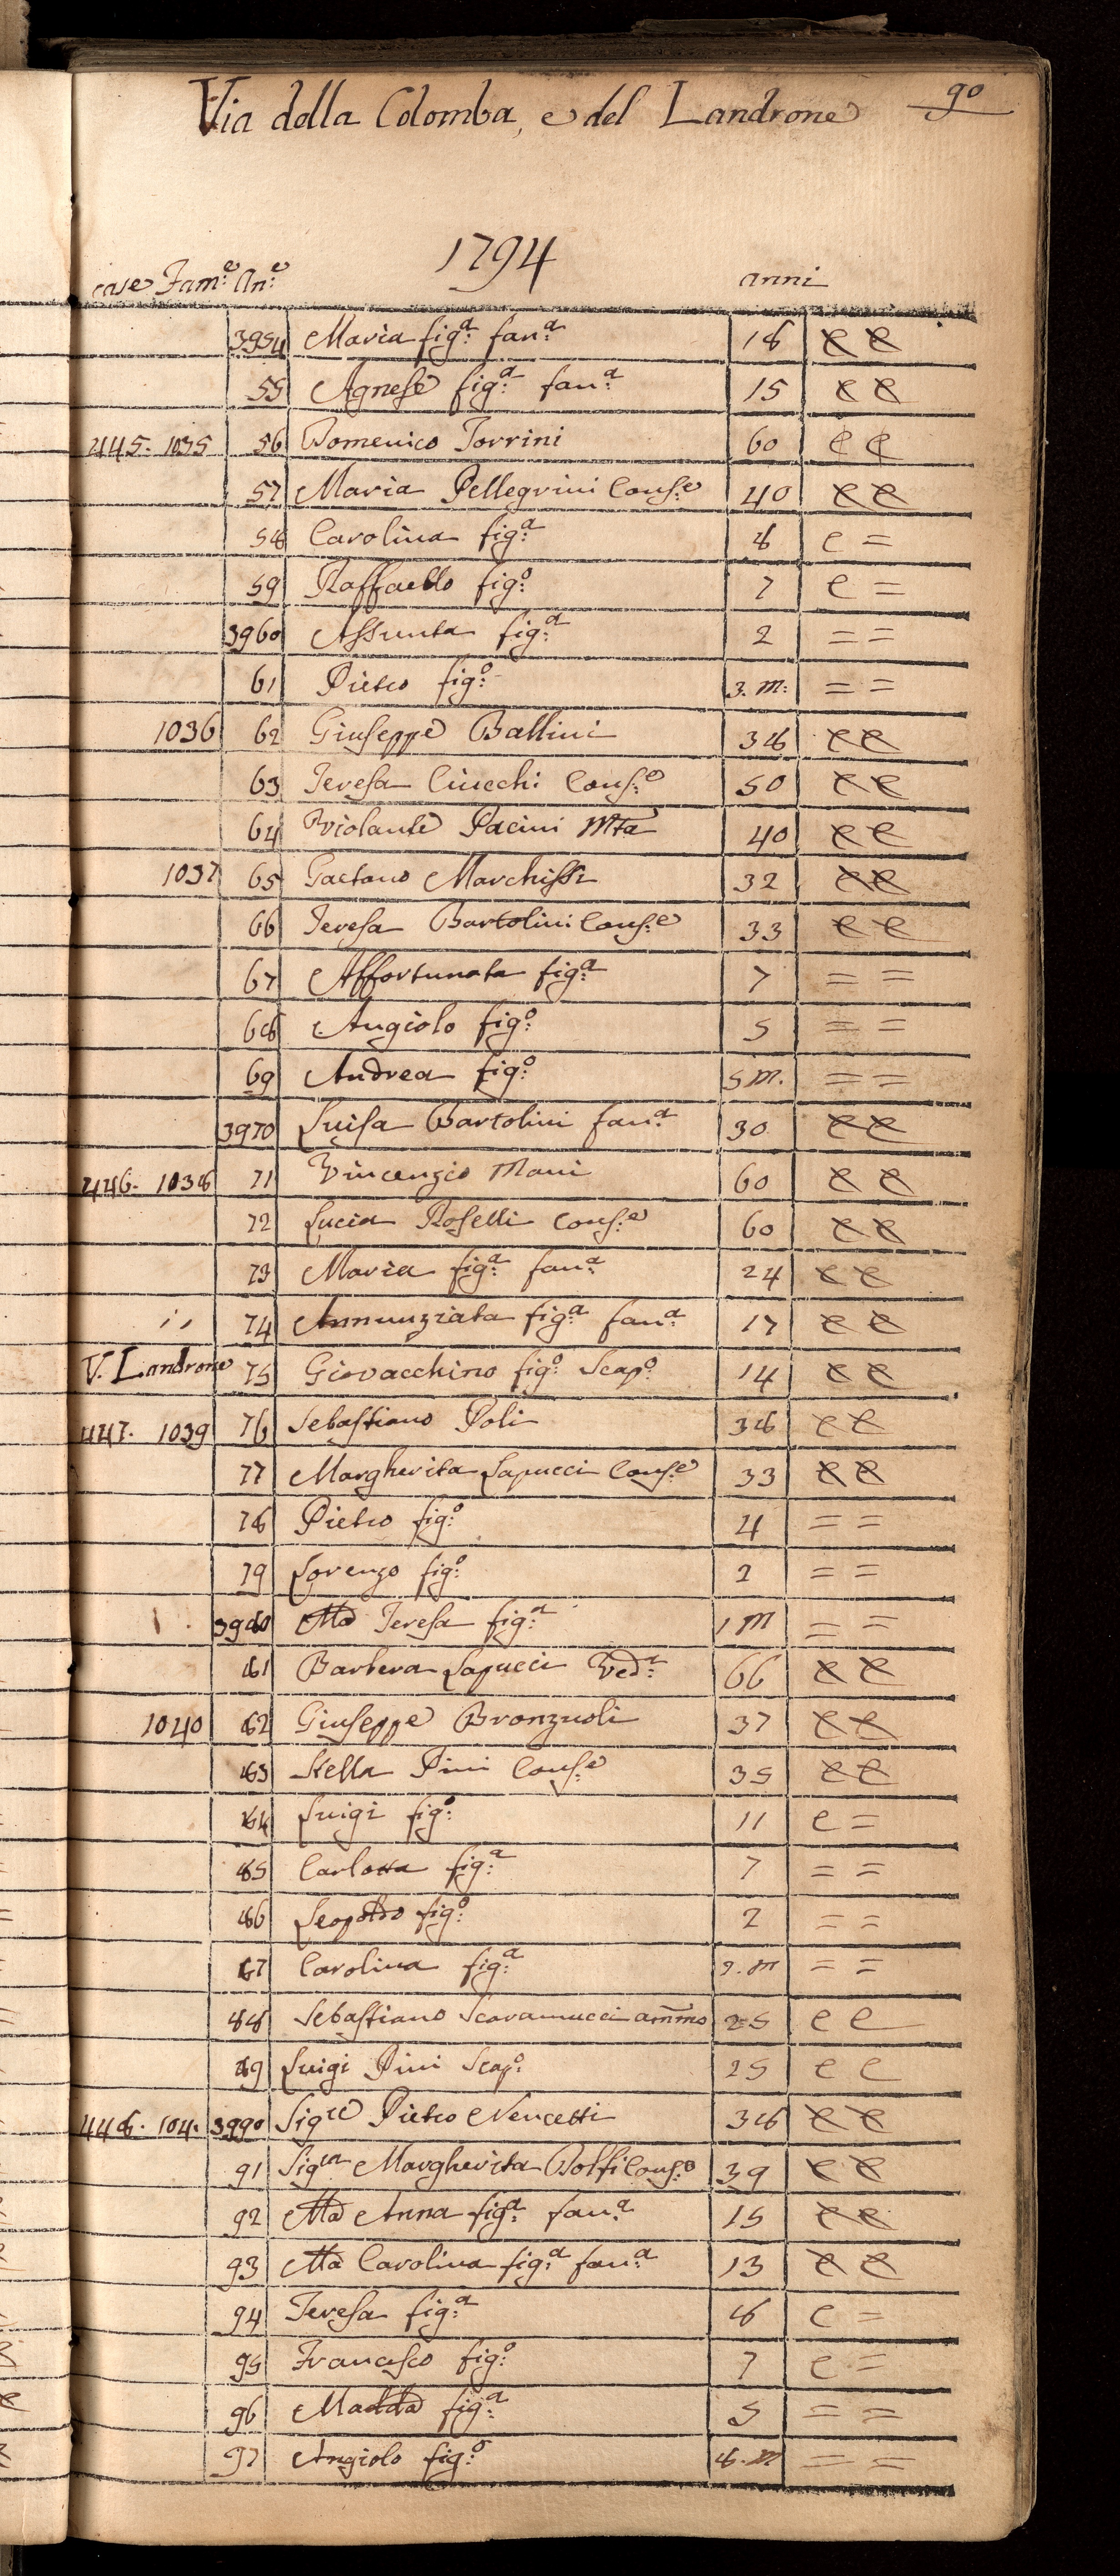 Via della Colomba, e del Landrone 90
1794
case Fam:e An:e anni
3954 Maria fig:a fan:a 18 e e
55 Agnese fig:a fan:a 15 e e
445. 1035 56 Domenico Torrini 60 e e
57 Maria Pellegrini Cons:e 40 e e
58 Carolina fig:a 8 e =
59 Raffaello fig:o 7 e =
3960 Assunta fig:a 2 = =
61 Pietro fig:o 3. m: = =
1036 62 Giuseppe Ballini 38 e e
63 Teresa Ciucchi Cons:e 50 e e
64 Violante Pacini Mta 40 e e
1037 65 Gaetano Marchissi 32 e e
66 Teresa Bartolini Cons:e 33 e e
67 Affortunata fig:a 7 = =
68 Angiolo fig:o 5 = =
69 Andrea fig:o 5 m. = =
3970 Luisa Bartolini fan:a 30 e e
446. 1038 71 Vincenzio Mani 60 e e
72 Lucia Roselli Cons:e 60 e e
73 Maria fig:a fan:a 24 e e
74 Annunziata fig:a fan:a 17 e e
V. Landrone 75 Giovacchino fig:o Scap:o 14 e e
447. 1039 76 Sebastiano Poli 38 e e
77 Margherita Lapucci Cons:e 33 e e
78 Pietro fig:o 4 = =
79 Lorenzo fig:o 2 = =
3980 Ma Teresa fig:a 1 m = =
81 Barbera Lapucci Ved:a 66 e e
1040 82 Giuseppe Bronzuoli 37 e e
83 Stella Pini Cons:e 35 e e
84 Luigi fig:o 11 e =
85 Carlotta fig:a 7 = =
86 Leopoldo fig:o 2 = =
87 Carolina fig:a m = =
88 Sebastiano Scaramucci ammo 25 e e
89 Luigi Pini Scap:o 25 e e
448. 104. 3990 Sigre Pietro Nencetti 38 e e
91 Sigra Margherita Bolfi Cons:e 39 e e
92 Ma Anna fig:a fan:a 15 e e
93 Ma Carolina fig:a fan:a 13 e e
94 Teresa fig:a 8 e =
95 Francesco fig:o 7 e =
96 Madda fig:a 5 = =
97 Angiolo fig:o 8. m = =